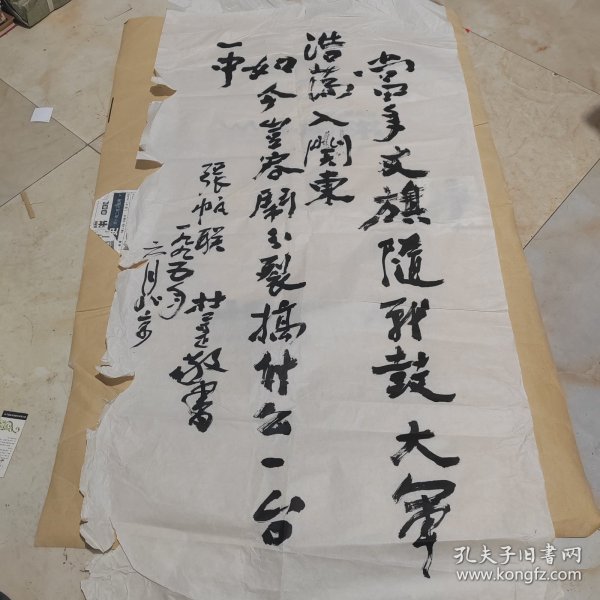 當年文旗隨戰鼓大軍
浩蕩入關東
如今豈容鬧分裂搞什么一台
一中
張帆联
一九九五年
月北京
杜 敬書
孔夫子旧书网
www.kongfz.com